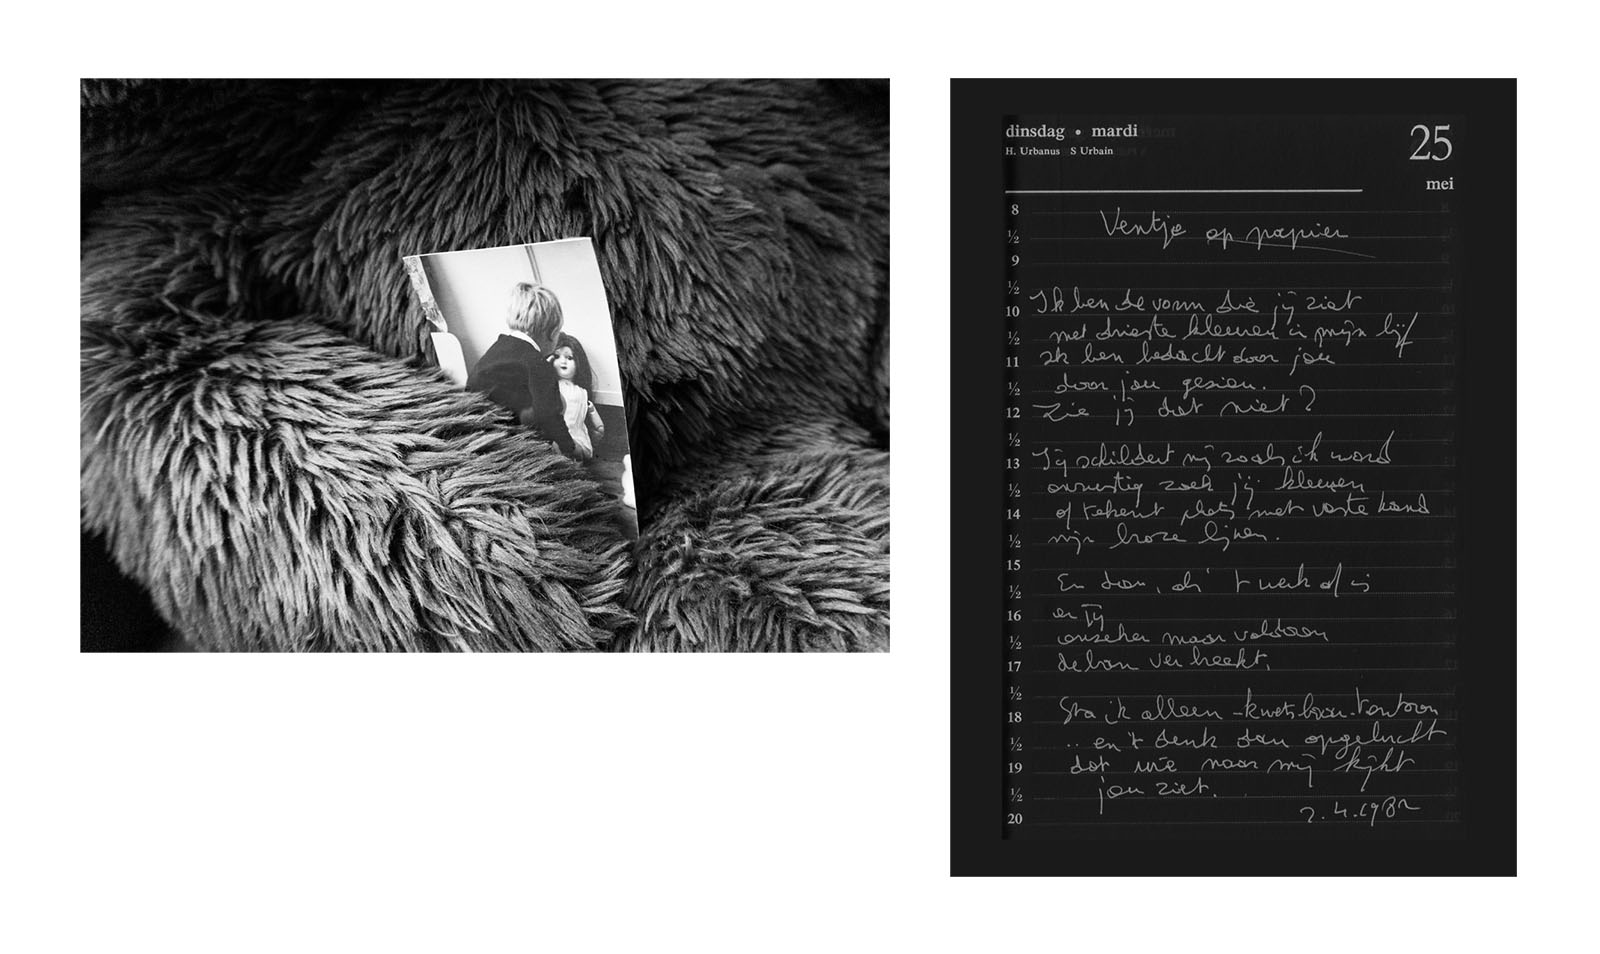 dinsdag • mardi
H. Urbanus S Urbain
25
mei
8
Ventje op papier
½
9
½
Ik ben de vorm die jij ziet
10
met drieste kleuren in mijn lijf
½
ik ben bedacht door jou
11
door jou gezien.
½
Zie jij dat niet?
12
½
Jij schildert mij zoals ik word
13
onrustig zoek jij kleuren
½
of tekent plots met vaste hand
14
mijn broze lijnen.
½
15
En dan, als 't werk af is
½
en jij
16
onzeker maar voldaan
½
de ban verbreekt,
17
½
Sta ik alleen - kwetsbaar - tentoon
18
.. en 't denk dan opgelucht
½
dat wie naar mij kijkt
19
jou ziet.
½
2.4.1982
20